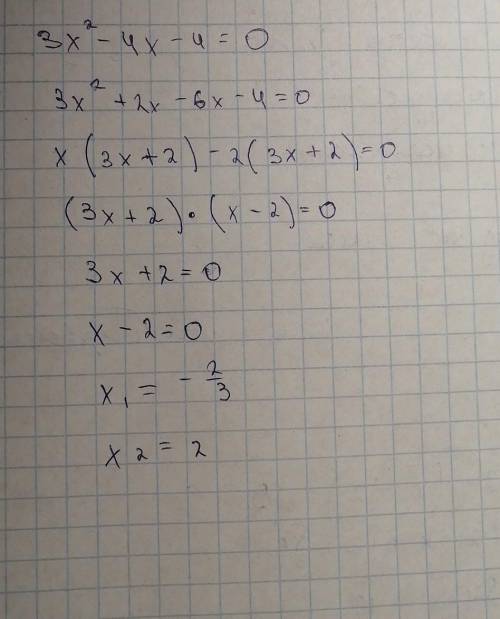 3x² - 4x - 4 = 0
3x² + 2x - 6x - 4 = 0
x (3x + 2) - 2(3x + 2) = 0
(3x + 2) • (x - 2) = 0
3x + 2 = 0
x - 2 = 0
x₁ = - 2/3
x₂ = 2